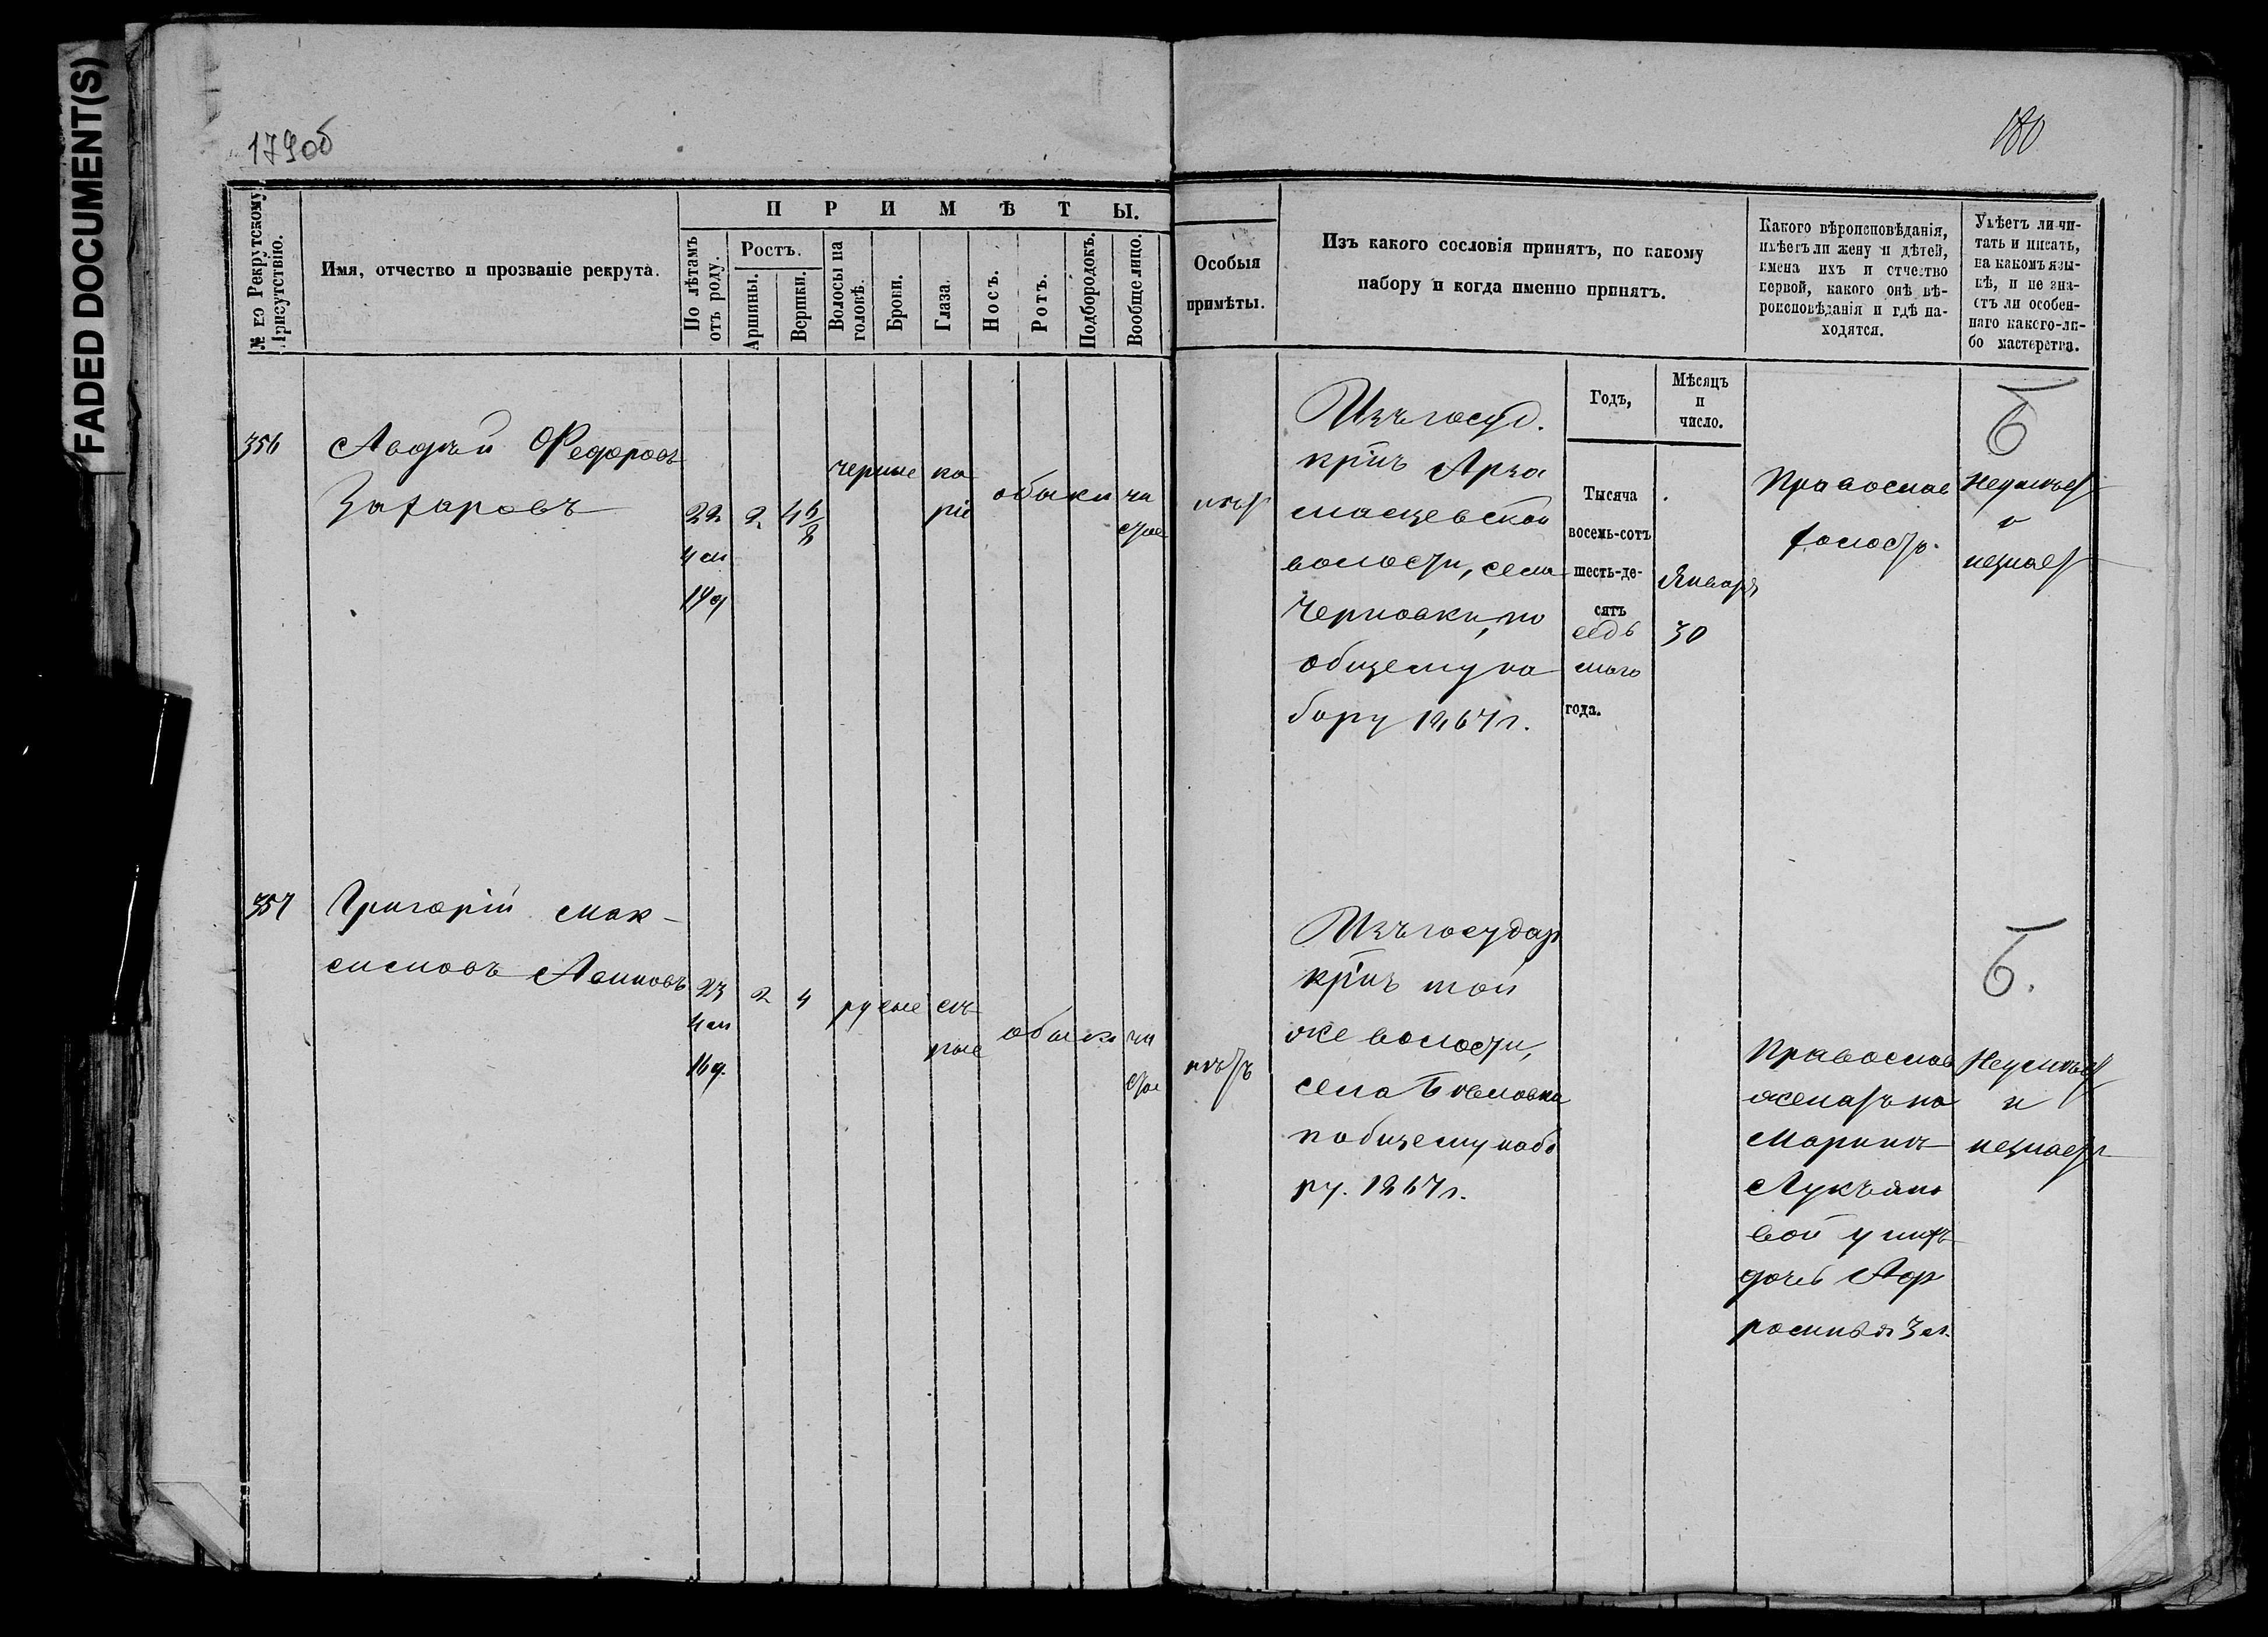 FADED DOCUMENT(S)
179об
180
№ по Рекрутскому Присутствію.
Имя, отчество и прозваніе рекрута.
ПРИМѢТЫ.
По лѣтамъ отъ роду.
Ростъ.
Аршины.
Вершки.
Волосы на головѣ.
Брови.
Глаза.
Носъ.
Ротъ.
Подбородокъ.
Вообще лицо.
Особыя
примѣты.
Изъ какого сословія принятъ, по какому
набору и когда именно принятъ.
Какого вѣроисповѣданія,
имѣетъ ли жену и дѣтей,
имена ихъ и отчество
первой, какого онѣ вѣ-
роисповѣданія и гдѣ на-
ходятся.
Умѣетъ ли чи-
тать и писать,
на какомъ язы-
кѣ, и не зна-
етъ ли особен-
наго какого-ли-
бо мастерства.
Годъ,
Мѣсяцъ
и
число.
356
Авдѣй Федоровъ
Захаровъ
22
4 м
14 д
2
4 5/8
черные
ка
ріе
обыкн
чи
стое
нѣт
Изъ госуд.
кр՚нъ Арза
масцевской
волости, села
Черновки, по
общему на
бору 1867 г.
Тысяча
восемь-сотъ
шесть-де-
сятъ
седь
маго
года.
Января
30
Православ
холост.
Б
Неумѣет
и
незнает
357
Григорій Мак-
симовъ
23
4 м
16 д.
2
4
русые
сѣ
рые
обыкн
чи
стое
нѣтъ
Изъ государ
кр՚нъ той
же волости,
села
п общему набо
ру. 1867 г.
Православ
женатъ на
Маринѣ
Лукьяно
вой у нихъ
дочь Аф
росинья 3 м.
Б.
Неумѣет
и
незнает